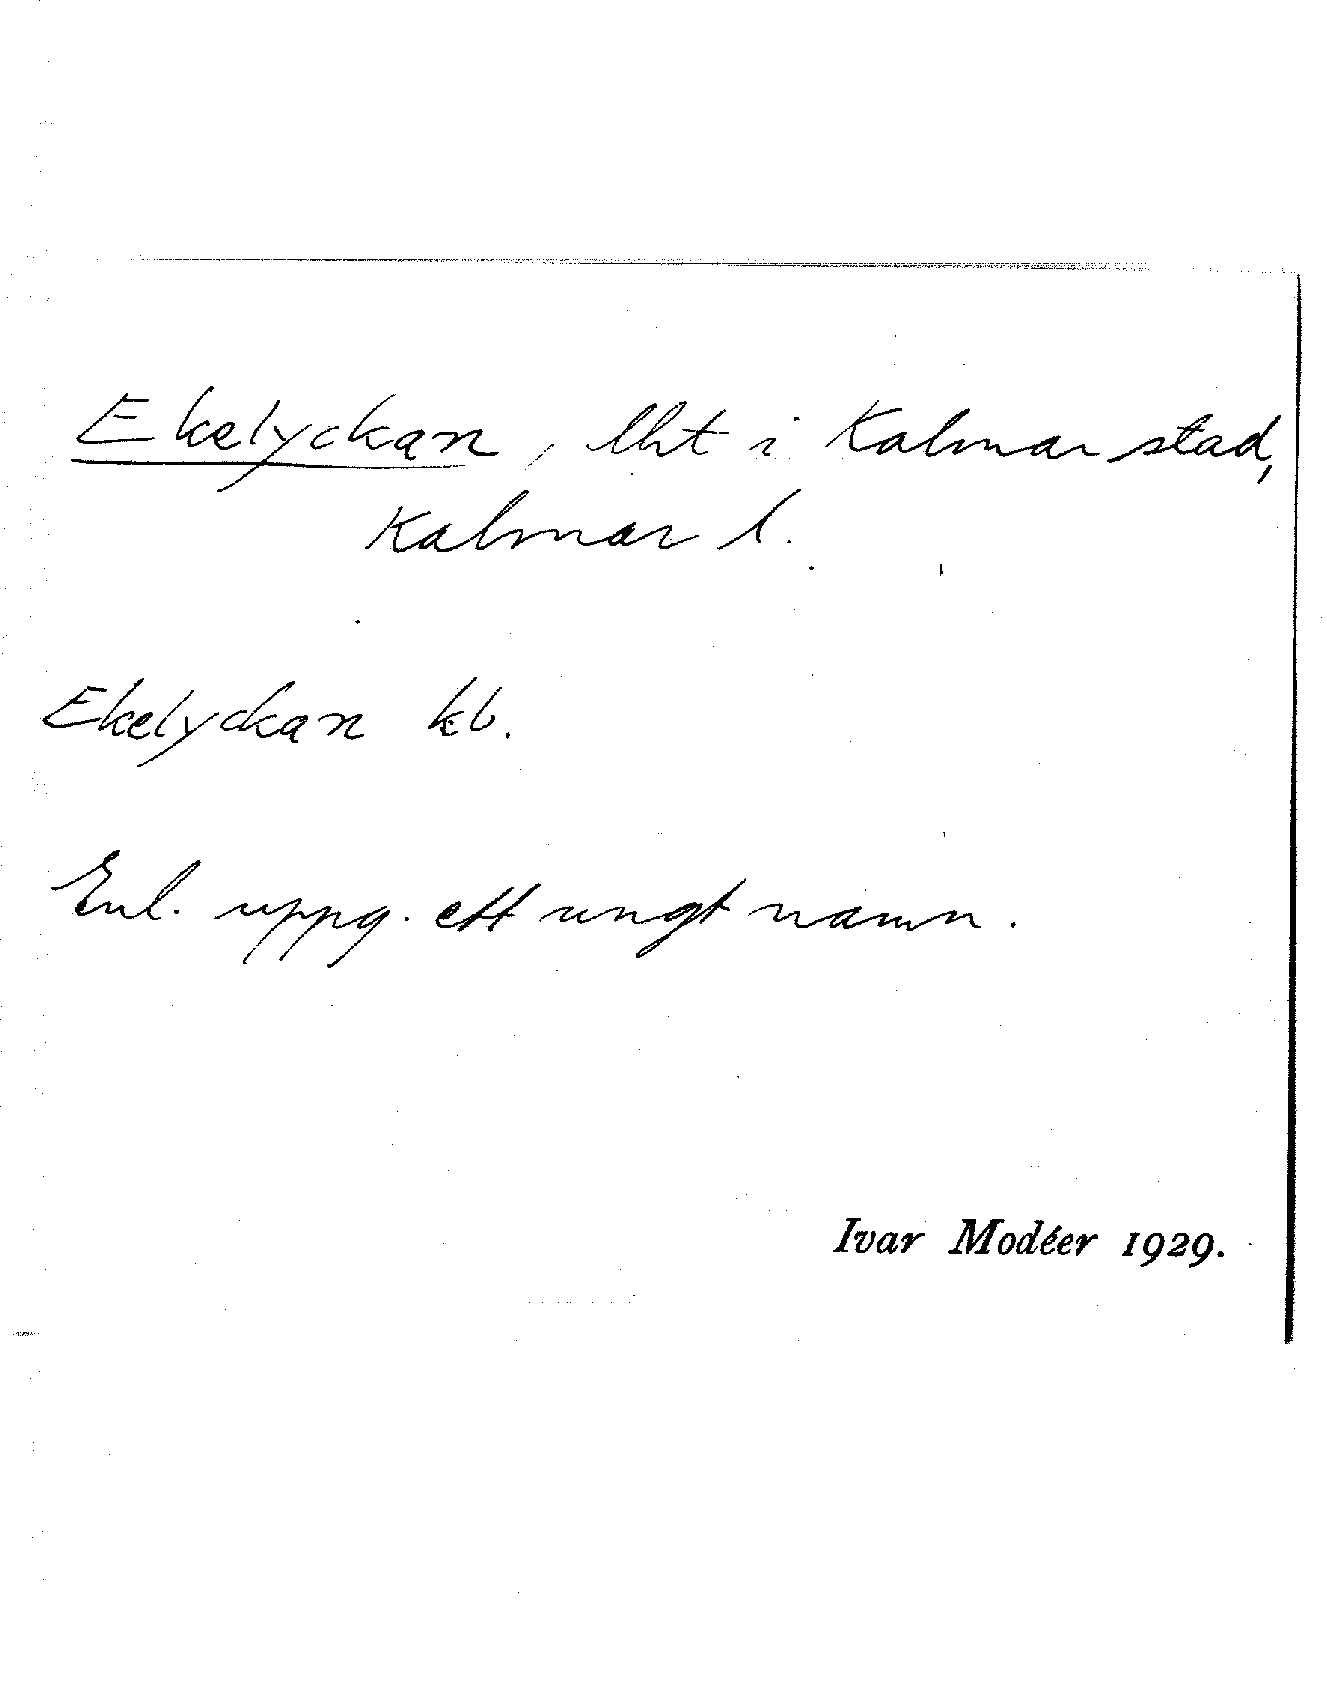 Ekelyckan, lht i Kalmar stad,
Kalmar l.
Ekelyckan kb.
Enl. uppg. ett ungt namn.
Ivar Modéer 1929.